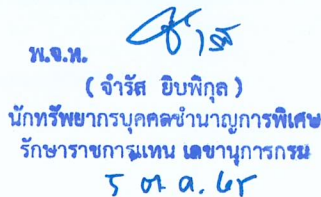 พ.จ.ท.
( จำรัส ยิบพิกุล )
นักทรัพยากรบุคคลชำนาญการพิเศษ
รักษาราชการแทน เลขานุการกรม
5 ต.ค. 65